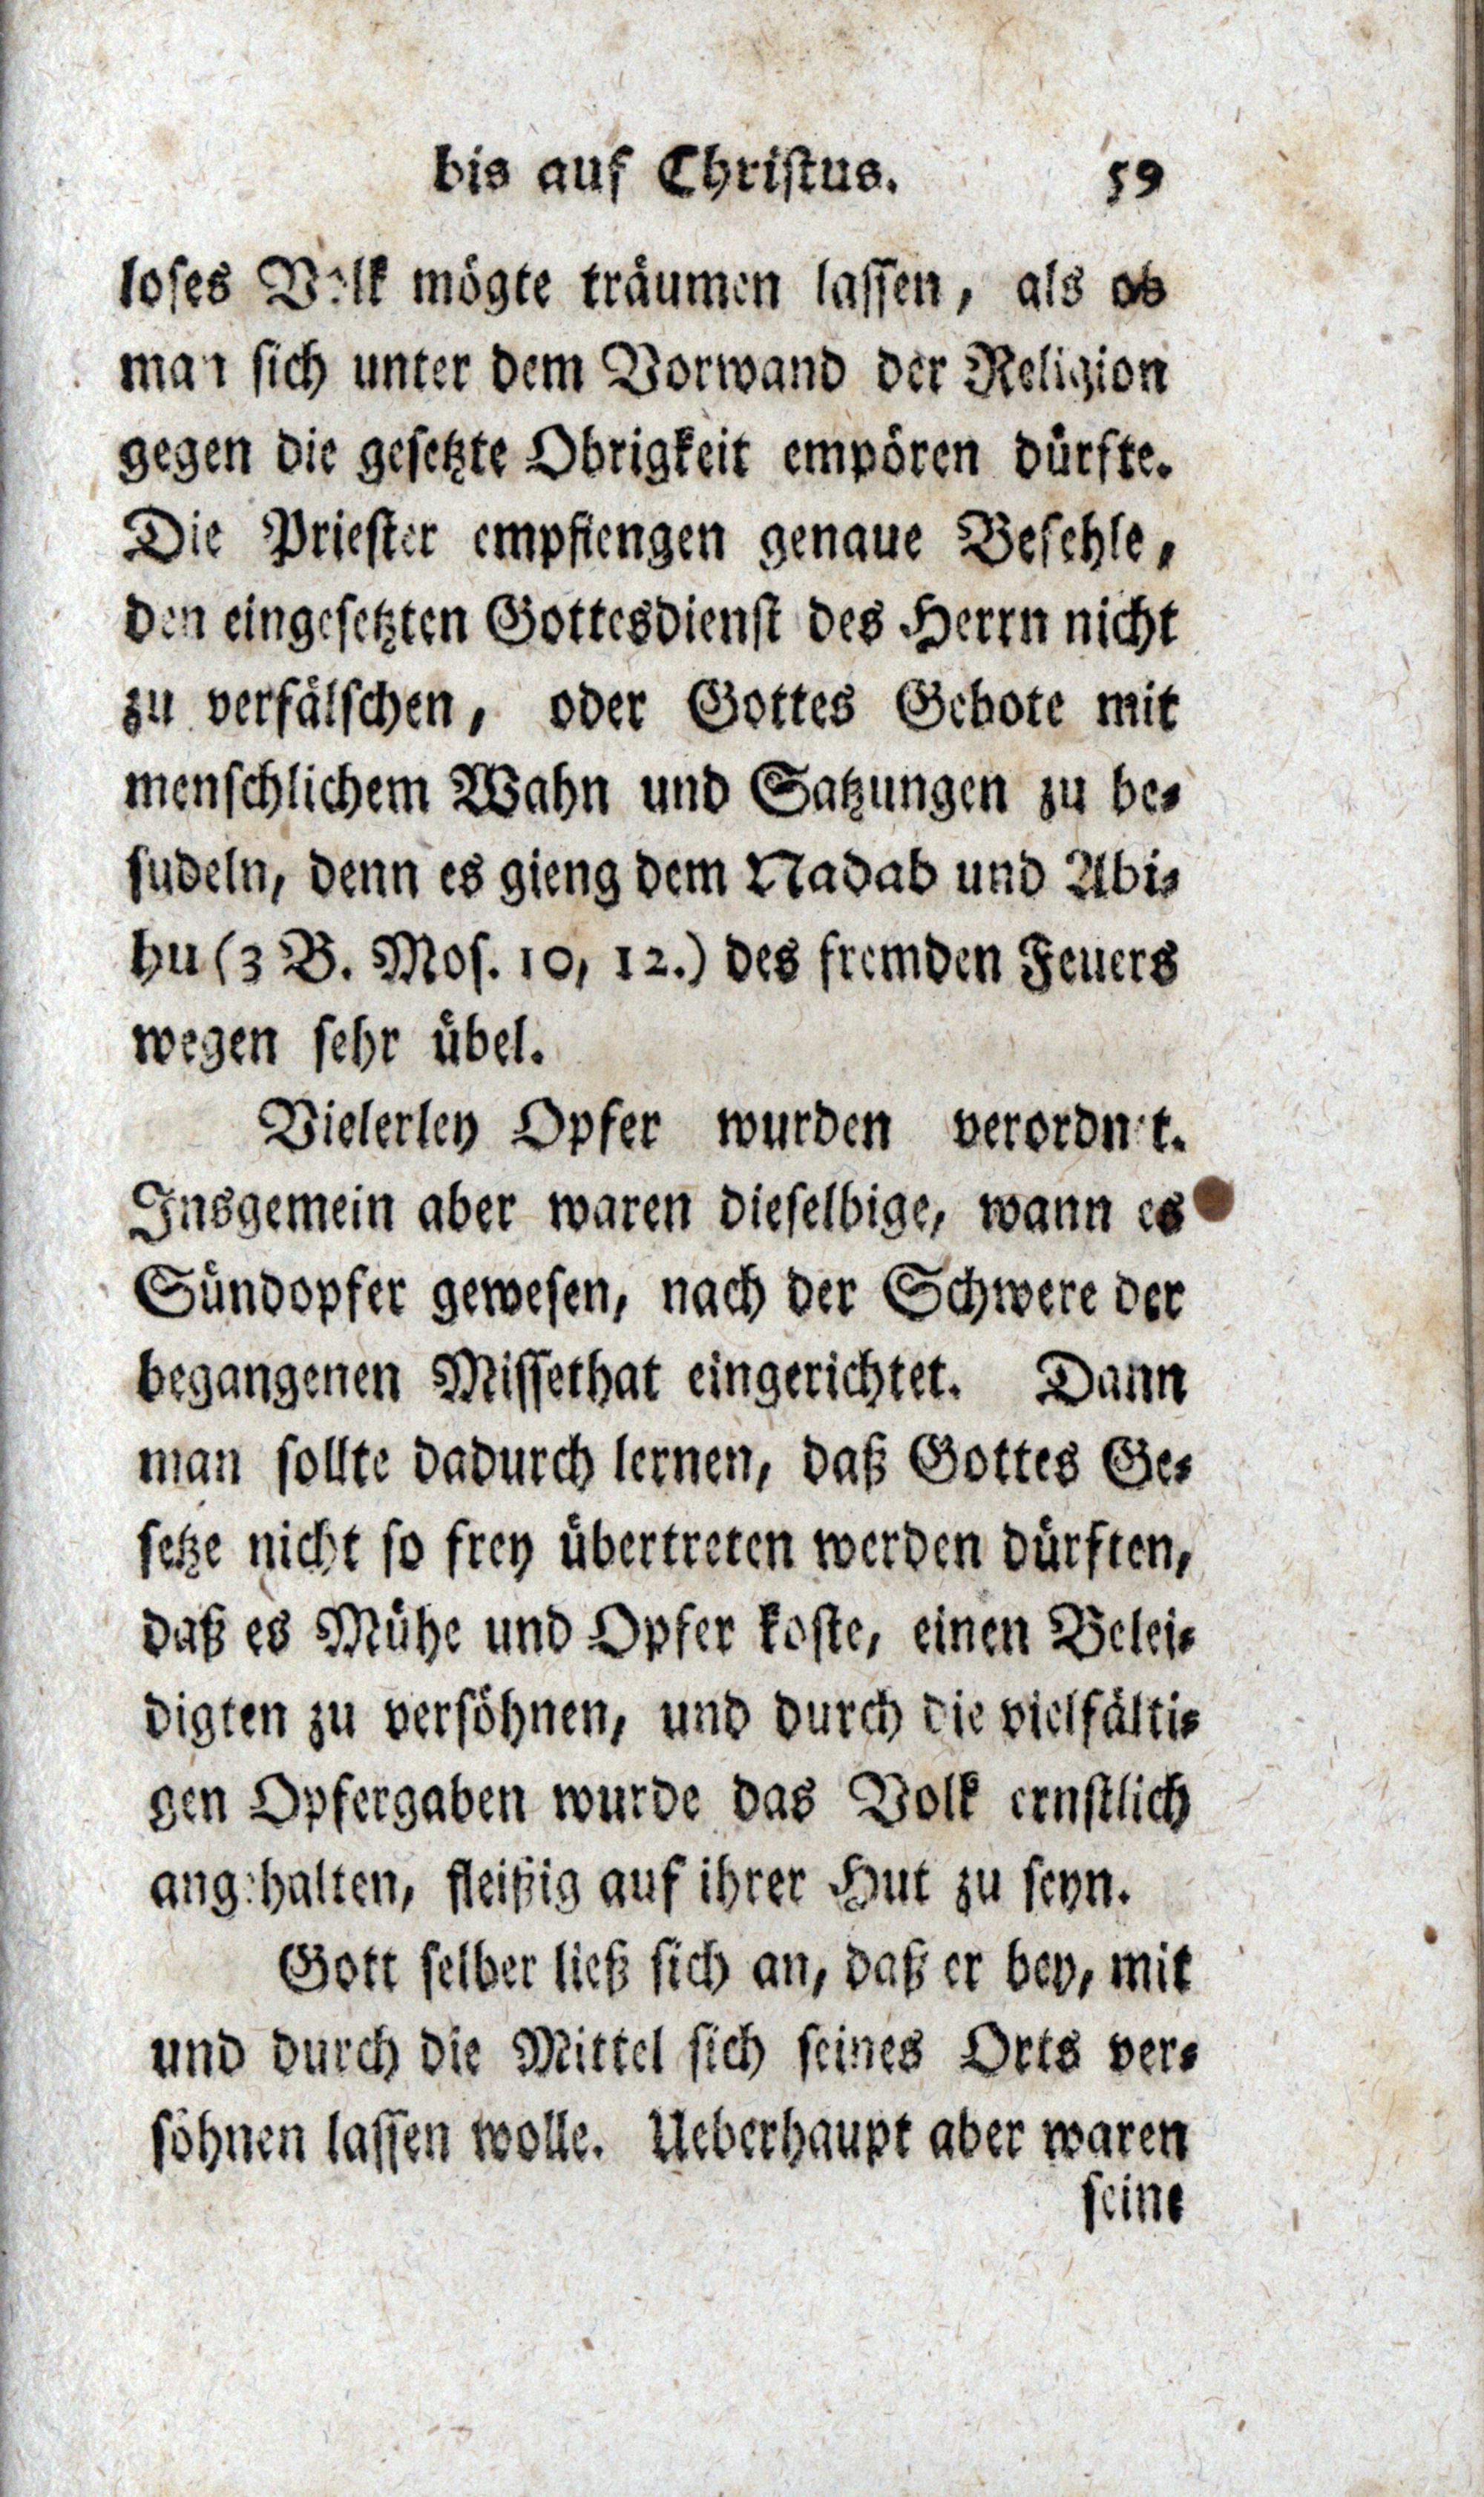 bis auf Christus. 59
loses Volk mögte träumen lassen, als ob
man sich unter dem Vorwand der Religion
gegen die gesetzte Obrigkeit empören dürfte.
Die Priester empfiengen genaue Befehle,
den eingesetzten Gottesdienst des Herrn nicht
zu verfälschen, oder Gottes Gebote mit
menschlichem Wahn und Satzungen zu be-
sudeln, denn es gieng dem Nadab und Abi-
hu (3 B. Mos. 10, 12.) des fremden Feuers
wegen sehr übel.
Vielerley Opfer wurden verordnet.
Insgemein aber waren dieselbige, wann es
Sündopfer gewesen, nach der Schwere der
begangenen Missethat eingerichtet. Dann
man sollte dadurch lernen, daß Gottes Ge-
setze nicht so frey übertreten werden dürften,
daß es Mühe und Opfer koste, einen Belei-
digten zu versöhnen, und durch die vielfälti-
gen Opfergaben wurde das Volk ernstlich
angehalten, fleißig auf ihrer Hut zu seyn.
Gott selber ließ sich an, daß er bey, mit
und durch die Mittel sich seines Orts ver-
söhnen lassen wolle. Ueberhaupt aber waren
seine